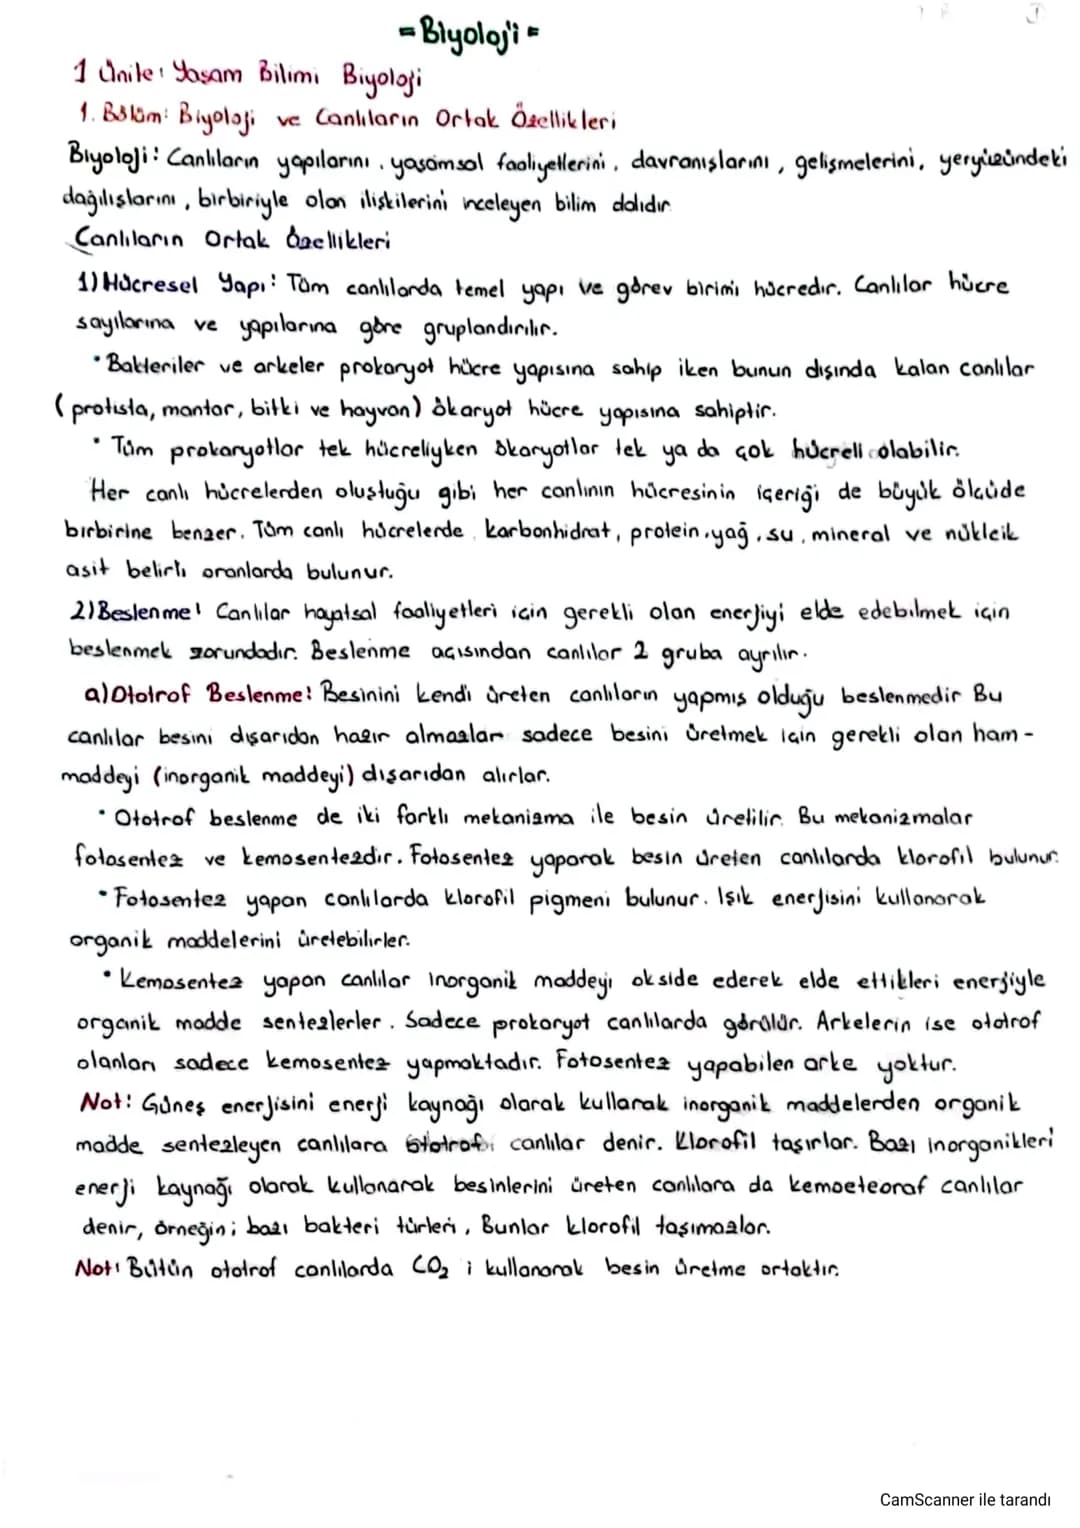 = Biyoloji =
1 Ünite: Yaşam Bilimi Biyoloji
1. Bölüm: Biyoloji ve Canlıların Ortak Özellikleri
Biyoloji: Canlıların yapılarını, yaşamsal faaliyetlerini, davranışlarını, gelişmelerini, yeryüzündeki
dağılışlarını, birbiriyle olan ilişkilerini inceleyen bilim dalıdır
Canlıların Ortak Özellikleri
1) Hücresel Yapı: Tüm canlılarda temel yapı ve görev birimi hücredir. Canlılar hücre
sayılarına ve yapılarına göre gruplandırılır.
• Bakteriler ve arkeler prokaryot hücre yapısına sahip iken bunun dışında kalan canlılar
(protista, mantar, bitki ve hayvan) ökaryot hücre yapısına sahiptir.
• Tüm prokaryotlar tek hücreliyken ökaryotlar tek ya da çok hücreli olabilir.
Her canlı hücrelerden oluştuğu gibi her canlının hücresinin içeriği de büyük ölçüde
birbirine benzer. Tüm canlı hücrelerde karbonhidrat, protein, yağ, su, mineral ve nükleik
asit belirli oranlarda bulunur.
2) Beslenme: Canlılar hayatsal faaliyetleri için gerekli olan enerjiyi elde edebilmek için
beslenmek zorundadır. Beslenme açısından canlılar 2 gruba ayrılır.
a) Ototrof Beslenme: Besinini kendi üreten canlıların yapmış olduğu beslenmedir Bu
canlılar besini dışarıdan hazır almazlar sadece besini üretmek için gerekli olan ham-
maddeyi (inorganik maddeyi) dışarıdan alırlar.
• Ototrof beslenme de iki farklı mekanizma ile besin üretilir. Bu mekanizmalar
fotosentez ve kemosentezdir. Fotosentez yaparak besin üreten canlılarda klorofil bulunur.
• Fotosentez yapan canlılarda klorofil pigmeni bulunur. Işık enerjisini kullanarak
organik maddelerini üretebilirler.
• Kemosentez yapan canlılar inorganik maddeyi okside ederek elde ettikleri enerjiyle
organik madde sentezlerler. Sadece prokaryot canlılarda görülür. Arkelerin ise ototrof
olanları sadece kemosentez yapmaktadır. Fotosentez yapabilen arke yoktur.
Not: Güneş enerjisini enerji kaynağı olarak kullarak inorganik maddelerden organik
madde sentezleyen canlılara ototrof canlılar denir. Klorofil taşırlar. Bazı inorganikleri
enerji kaynağı olarak kullanarak besinlerini üreten canlılara da kemoeteoraf canlılar
denir, örneğin; bazı bakteri türleri, Bunlar klorofil taşımazlar.
Not: Bütün ototrof canlılarda CO₂ i kullanarak besin üretme ortaktır.
CamScanner ile tarandı